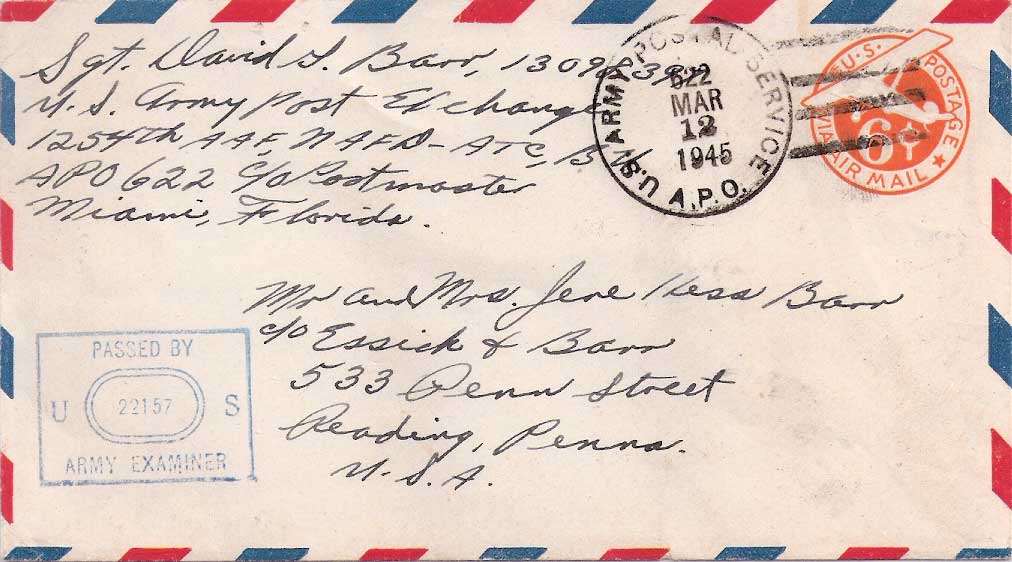 Sgt. David I. Barr,
U.S. Army Post Exchange
1254th AAF, NAFD-ATC,
APO 622 c/o Postmaster
Miami, Florida.
U.S. ARMY POSTAL SERVICE
622
MAR
12
1945
A.P.O.
U.S. POSTAGE
6¢
VIA AIR MAIL
Mr and Mrs. Jere Hess Barr
c/o Essick & Barr
533 Penn Street
Reading, Penna.
U.S.A.
PASSED BY
U 22157 S
ARMY EXAMINER